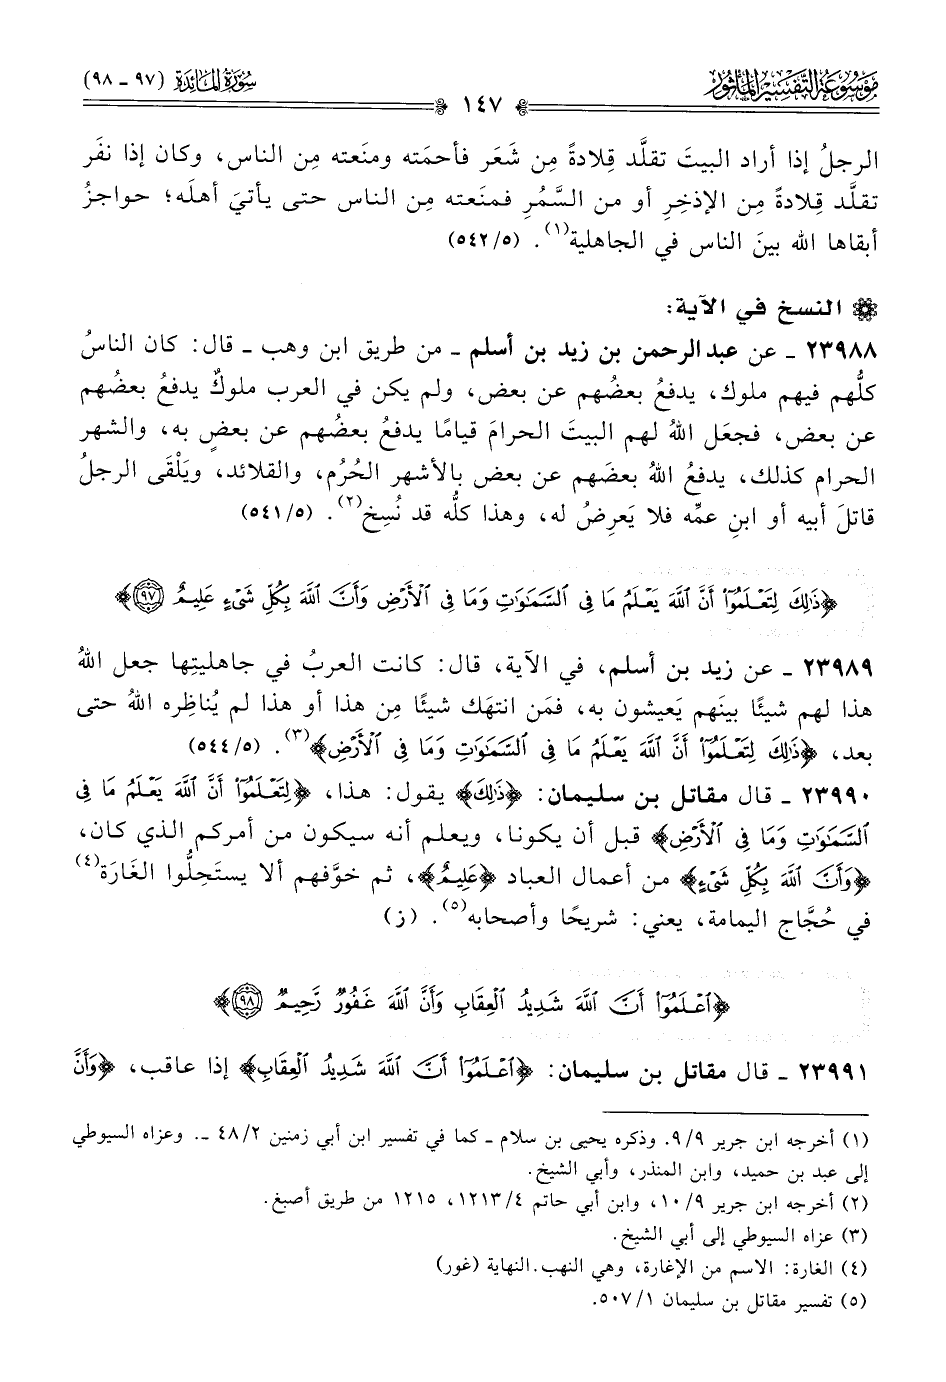 موسوعة التفسير المأثور
١٤٧
سورة المائدة (٩٧ - ٩٨)
الرجلُ إذا أراد البيتَ تقلَّد قِلادةً مِن شَعَر فأحمَته ومنَعته مِن الناس، وكان إذا نفَر
تقلَّد قِلادةً مِن الإذخِرِ أو من السَّمُرِ فمنَعته مِن الناس حتى يأتيَ أهلَه؛ حواجزُ
أبقاها الله بينَ الناس في الجاهلية(١). (٥٤٢/٥)
النسخ في الآية:
٢٣٩٨٨ - عن عبد الرحمن بن زيد بن أسلم - من طريق ابن وهب - قال: كان الناسُ
كلُّهم فيهم ملوك، يدفعُ بعضُهم عن بعض، ولم يكن في العرب ملوكٌ يدفعُ بعضُهم
عن بعض، فجعَل اللهُ لهم البيتَ الحرامَ قيامًا يدفعُ بعضُهم عن بعضٍ به، والشهر
الحرام كذلك، يدفعُ اللهُ بعضَهم عن بعض بالأشهر الحُرُم، والقلائد، ويَلْقَى الرجلُ
قاتلَ أبيه أو ابنِ عمِّه فلا يَعرِضُ له، وهذا كلُّه قد نُسِخ(٢). (٥٤١/٥)
﴿ذَٰلِكَ لِتَعْلَمُوٓا۟ أَنَّ ٱللَّهَ يَعْلَمُ مَا فِى ٱلسَّمَٰوَٰتِ وَمَا فِى ٱلْأَرْضِ وَأَنَّ ٱللَّهَ بِكُلِّ شَىْءٍ عَلِيمٌ ٩٧﴾
٢٣٩٨٩ - عن زيد بن أسلم، في الآية، قال: كانت العربُ في جاهليتِها جعل اللهُ
هذا لهم شيئًا بينَهم يَعيشون به، فمَن انتهَك شيئًا مِن هذا أو هذا لم يُناظِره اللهُ حتى
بعد، ﴿ذَٰلِكَ لِتَعْلَمُوٓا۟ أَنَّ ٱللَّهَ يَعْلَمُ مَا فِى ٱلسَّمَٰوَٰتِ وَمَا فِى ٱلْأَرْضِ﴾(٣). (٥٤٤/٥)
٢٣٩٩٠ - قال مقاتل بن سليمان: ﴿ذَٰلِكَ﴾ يقول: هذا، ﴿لِتَعْلَمُوٓا۟ أَنَّ ٱللَّهَ يَعْلَمُ مَا فِى
ٱلسَّمَٰوَٰتِ وَمَا فِى ٱلْأَرْضِ﴾ قبل أن يكونا، ويعلم أنه سيكون من أمركم الذي كان،
﴿وَأَنَّ ٱللَّهَ بِكُلِّ شَىْءٍ﴾ من أعمال العباد ﴿عَلِيمٌ﴾، ثم خوَّفهم ألا يستحِلُّوا الغَارَة(٤)
في حُجَّاج اليمامة، يعني: شريحًا وأصحابه(٥). (ز)
﴿ٱعْلَمُوٓا۟ أَنَّ ٱللَّهَ شَدِيدُ ٱلْعِقَابِ وَأَنَّ ٱللَّهَ غَفُورٌ رَّحِيمٌ ٩٨﴾
٢٣٩٩١ - قال مقاتل بن سليمان: ﴿ٱعْلَمُوٓا۟ أَنَّ ٱللَّهَ شَدِيدُ ٱلْعِقَابِ﴾ إذا عاقب، ﴿وَأَنَّ
(١) أخرجه ابن جرير ٩/٩. وذكره يحيى بن سلام - كما في تفسير ابن أبي زمنين ٤٨/٢ -. وعزاه السيوطي
إلى عبد بن حميد، وابن المنذر، وأبي الشيخ.
(٢) أخرجه ابن جرير ١٠/٩، وابن أبي حاتم ١٢١٣/٤، ١٢١٥ من طريق أصبغ.
(٣) عزاه السيوطي إلى أبي الشيخ.
(٤) الغارة: الاسم من الإغارة، وهي النهب. النهاية (غور)
(٥) تفسير مقاتل بن سليمان ٥٠٧/١.